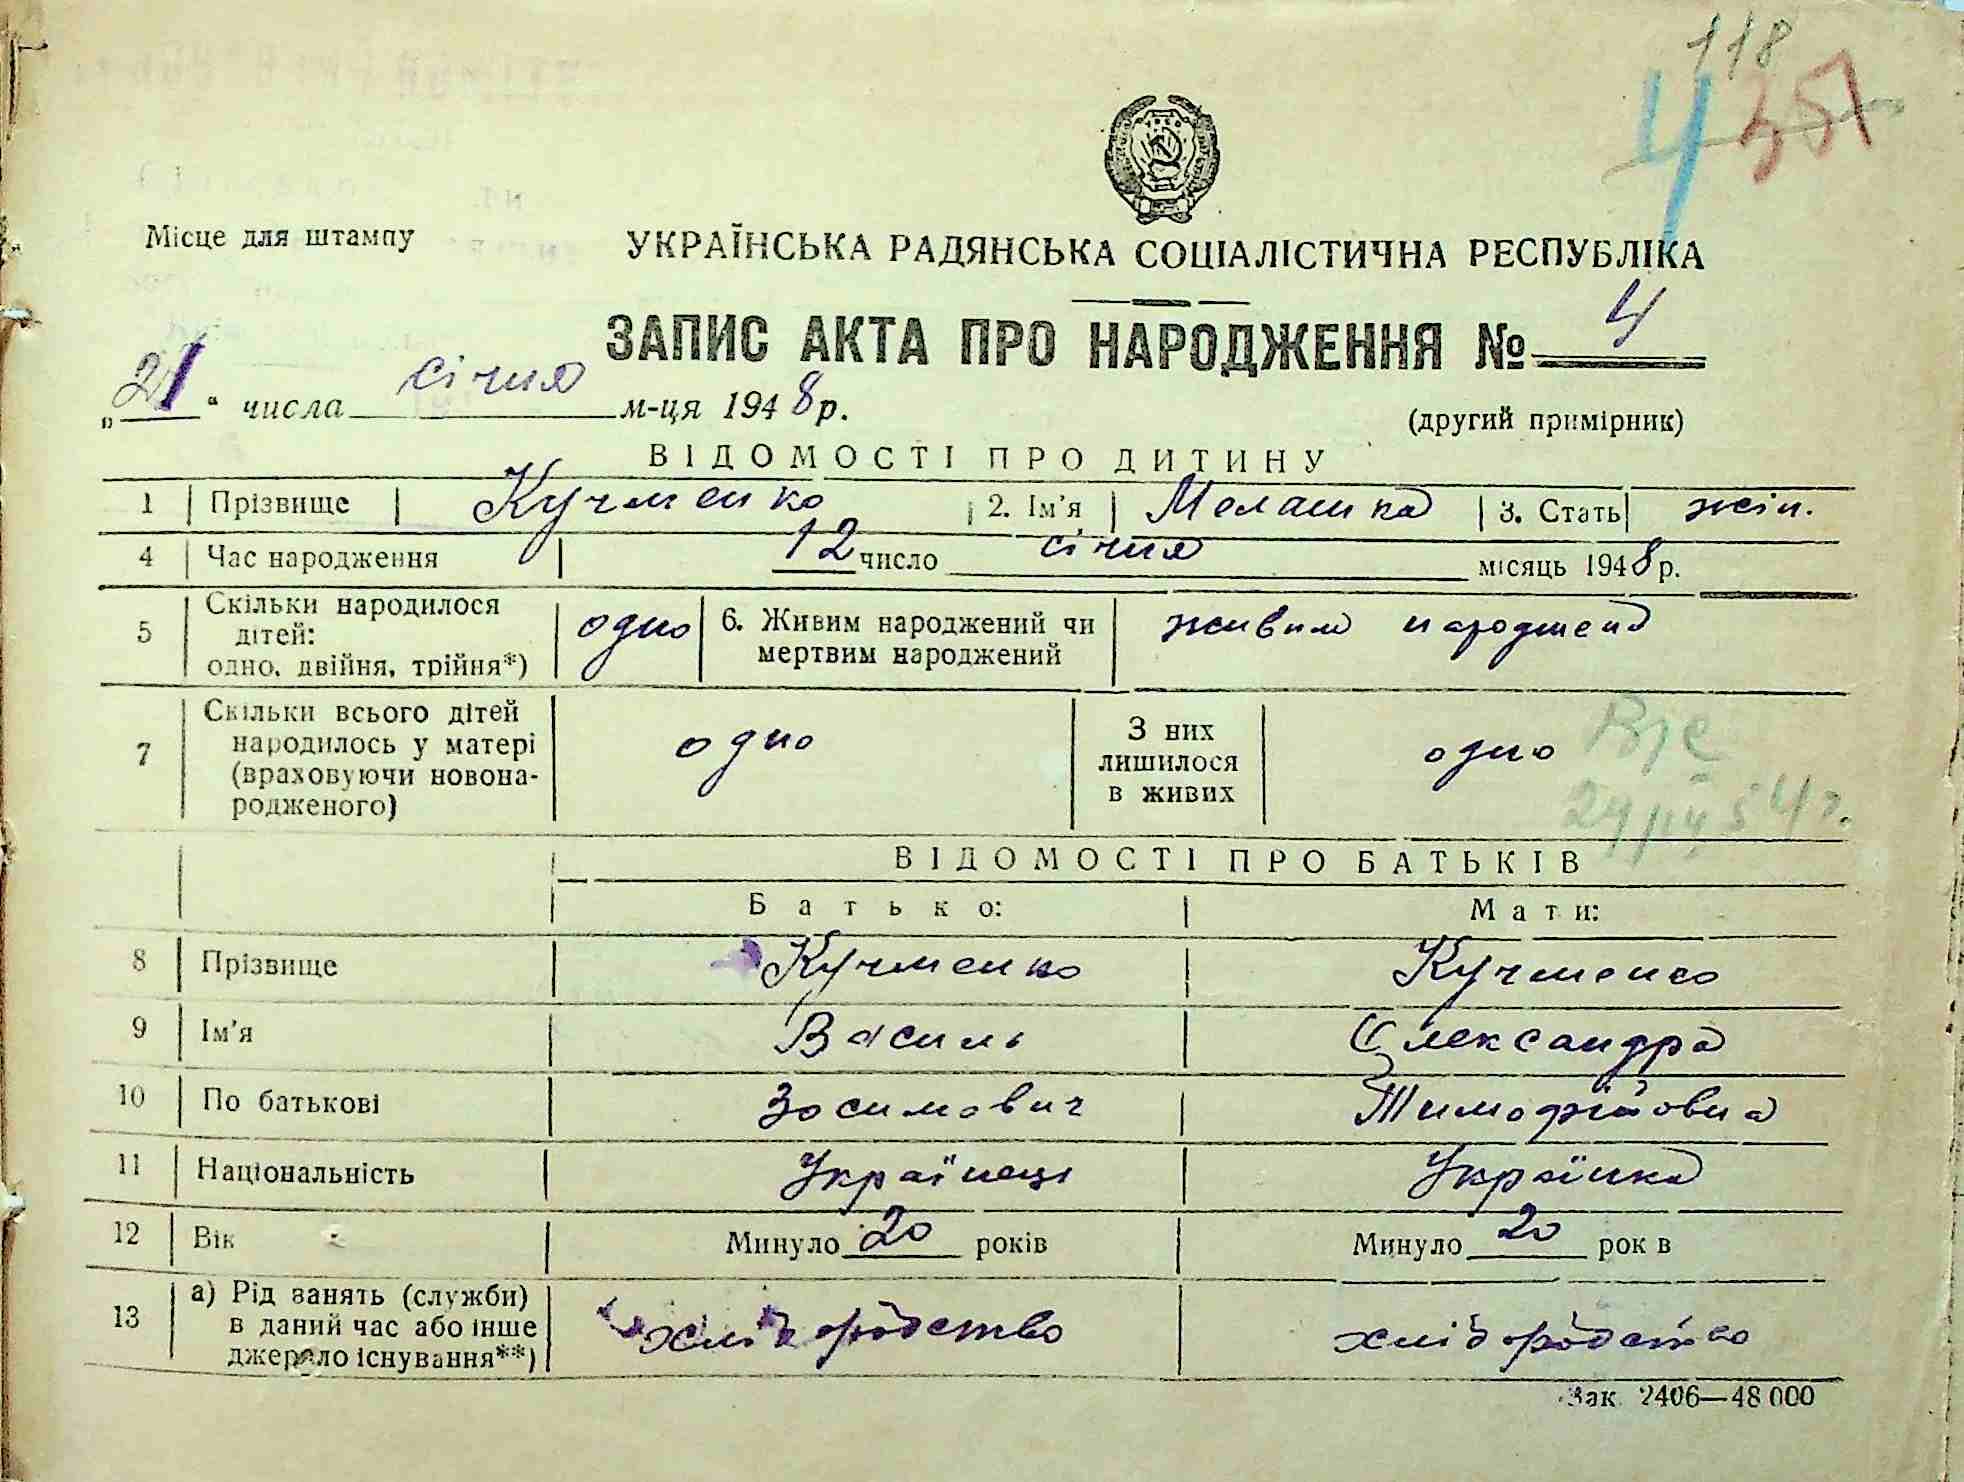 118
4 351
Місце для штампу
УКРАЇНСЬКА РАДЯНСЬКА СОЦІАЛІСТИЧНА РЕСПУБЛІКА
ЗАПИС АКТА ПРО НАРОДЖЕННЯ № 4
„21“ числа січня м-ця 1948 р.
(другий примірник)
ВІДОМОСТІ ПРО ДИТИНУ
1 Прізвище Кучменко 2. Ім'я Мелашка 3. Стать жін.
4 Час народження 12 число січня місяць 1948 р.
5 Скільки народилося дітей: одно, двійня, трійня*) одно 6. Живим народжений чи мертвим народжений живим народжена
7 Скільки всього дітей народилось у матері (враховуючи новонародженого) одно З них лишилося в живих одно
24/IV 54 г.
ВІДОМОСТІ ПРО БАТЬКІВ
Батько: Мати:
8 Прізвище Кучменко Кучменко
9 Ім'я Василь Олександра
10 По батькові Зосимович Тимофійовна
11 Національність Українець Українка
12 Вік Минуло 20 років Минуло 20 рок в
13 а) Рід занять (служби) в даний час або інше джерело існування**) хлібородство хлібородство
Зак. 2406—48 000